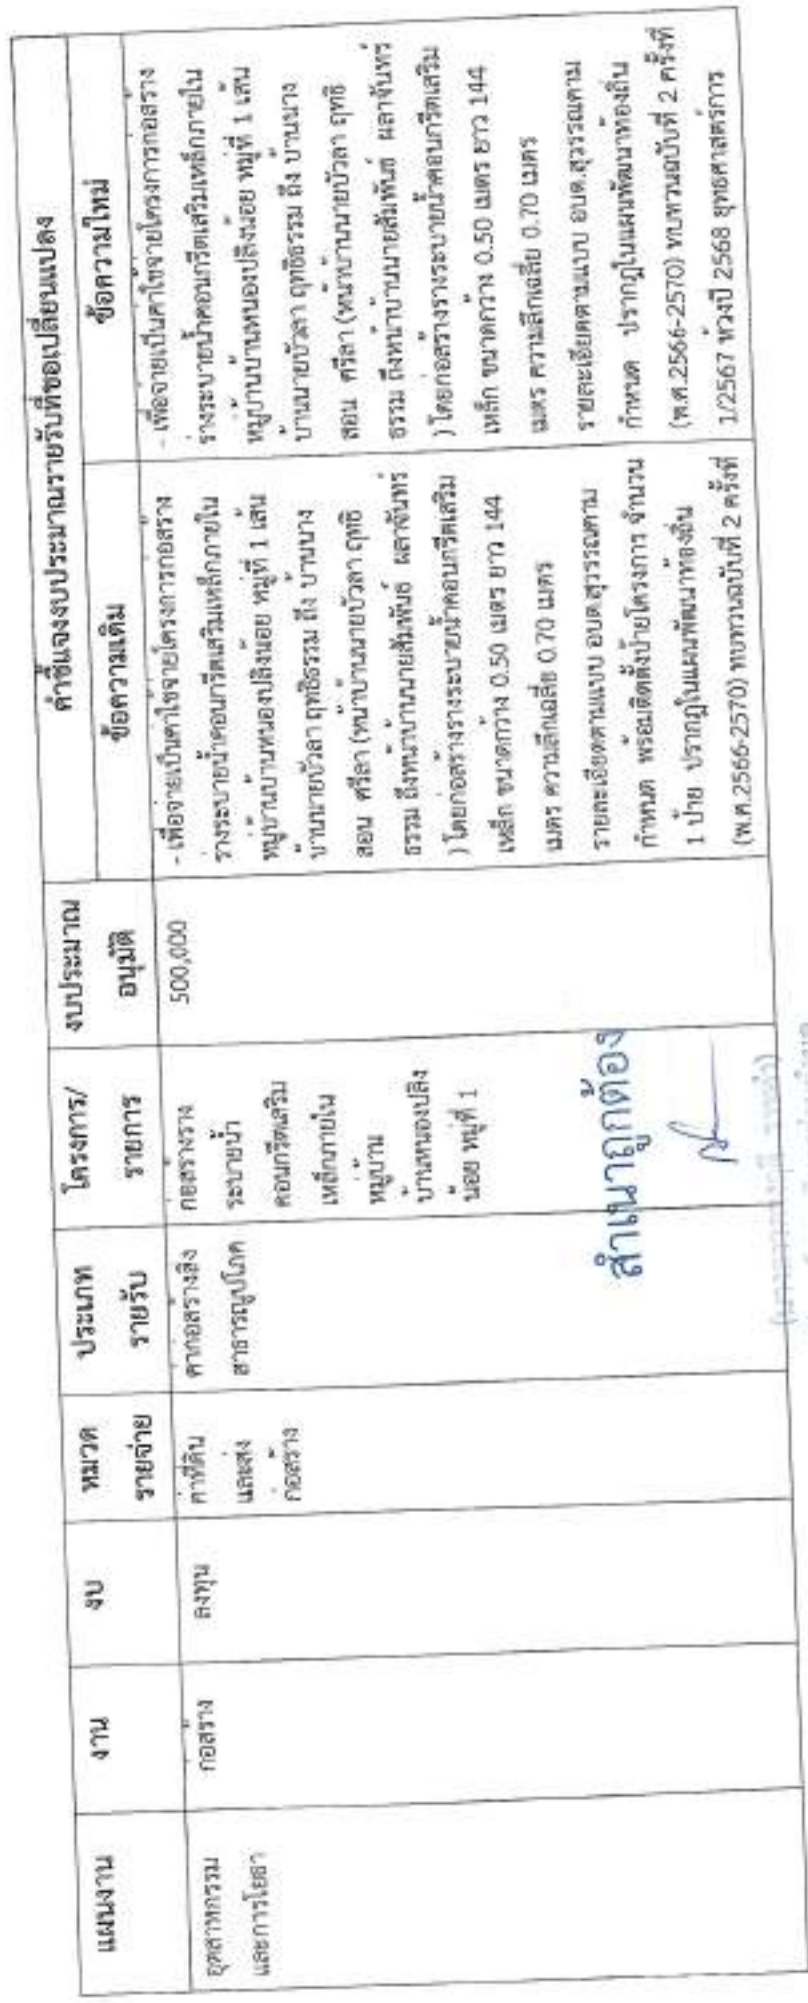 คำชี้แจงงบประมาณรายรับที่ขอเปลี่ยนแปลง
แผนงาน
งาน
งบ
หมวด
รายจ่าย
ประเภท
รายรับ
โครงการ/
รายการ
งบประมาณ
อนุมัติ
ข้อความเดิม
ข้อความใหม่
อุตสาหกรรม
และการโยธา
ก่อสร้าง
ลงทุน
ค่าที่ดิน
และสิ่ง
ก่อสร้าง
ค่าก่อสร้างสิ่ง
สาธารณูปโภค
ก่อสร้างราง
ระบายน้ำ
คอนกรีตเสริม
เหล็กภายใน
หมู่บ้าน
บ้านหนองปลิง
น้อย หมู่ที่ 1
500,000
- เพื่อจ่ายเป็นค่าใช้จ่ายโครงการก่อสร้าง
รางระบายน้ำคอนกรีตเสริมเหล็กภายใน
หมู่บ้านบ้านหนองปลิงน้อย หมู่ที่ 1 เส้น
บ้านนายบัวลา ฤทธิธรรม ถึง บ้านนาง
สอน ศรีลา (หน้าบ้านนายบัวลา ฤทธิ
ธรรม ถึงหน้าบ้านนายสัมพันธ์ ผลาจันทร์
) โดยก่อสร้างรางระบายน้ำคอนกรีตเสริม
เหล็ก ขนาดกว้าง 0.50 เมตร ยาว 144
เมตร ความลึกเฉลี่ย 0.70 เมตร
รายละเอียดตามแบบ อบต.สุวรรณคาม
กำหนด พร้อมติดตั้งป้ายโครงการ จำนวน
1 ป้าย ปรากฏในแผนพัฒนาท้องถิ่น
(พ.ศ.2566-2570) ทบทวนฉบับที่ 2 ครั้งที่
- เพื่อจ่ายเป็นค่าใช้จ่ายโครงการก่อสร้าง
รางระบายน้ำคอนกรีตเสริมเหล็กภายใน
หมู่บ้านบ้านหนองปลิงน้อย หมู่ที่ 1 เส้น
บ้านนายบัวลา ฤทธิธรรม ถึง บ้านนาง
สอน ศรีลา (หน้าบ้านนายบัวลา ฤทธิ
ธรรม ถึงหน้าบ้านนายสัมพันธ์ ผลาจันทร์
) โดยก่อสร้างรางระบายน้ำคอนกรีตเสริม
เหล็ก ขนาดกว้าง 0.50 เมตร ยาว 144
เมตร ความลึกเฉลี่ย 0.70 เมตร
รายละเอียดตามแบบ อบต.สุวรรณคาม
กำหนด ปรากฏในแผนพัฒนาท้องถิ่น
(พ.ศ.2566-2570) ทบทวนฉบับที่ 2 ครั้งที่
1/2567 ห้วงปี 2568 ยุทธศาสตร์การ
สำเนาถูกต้อง